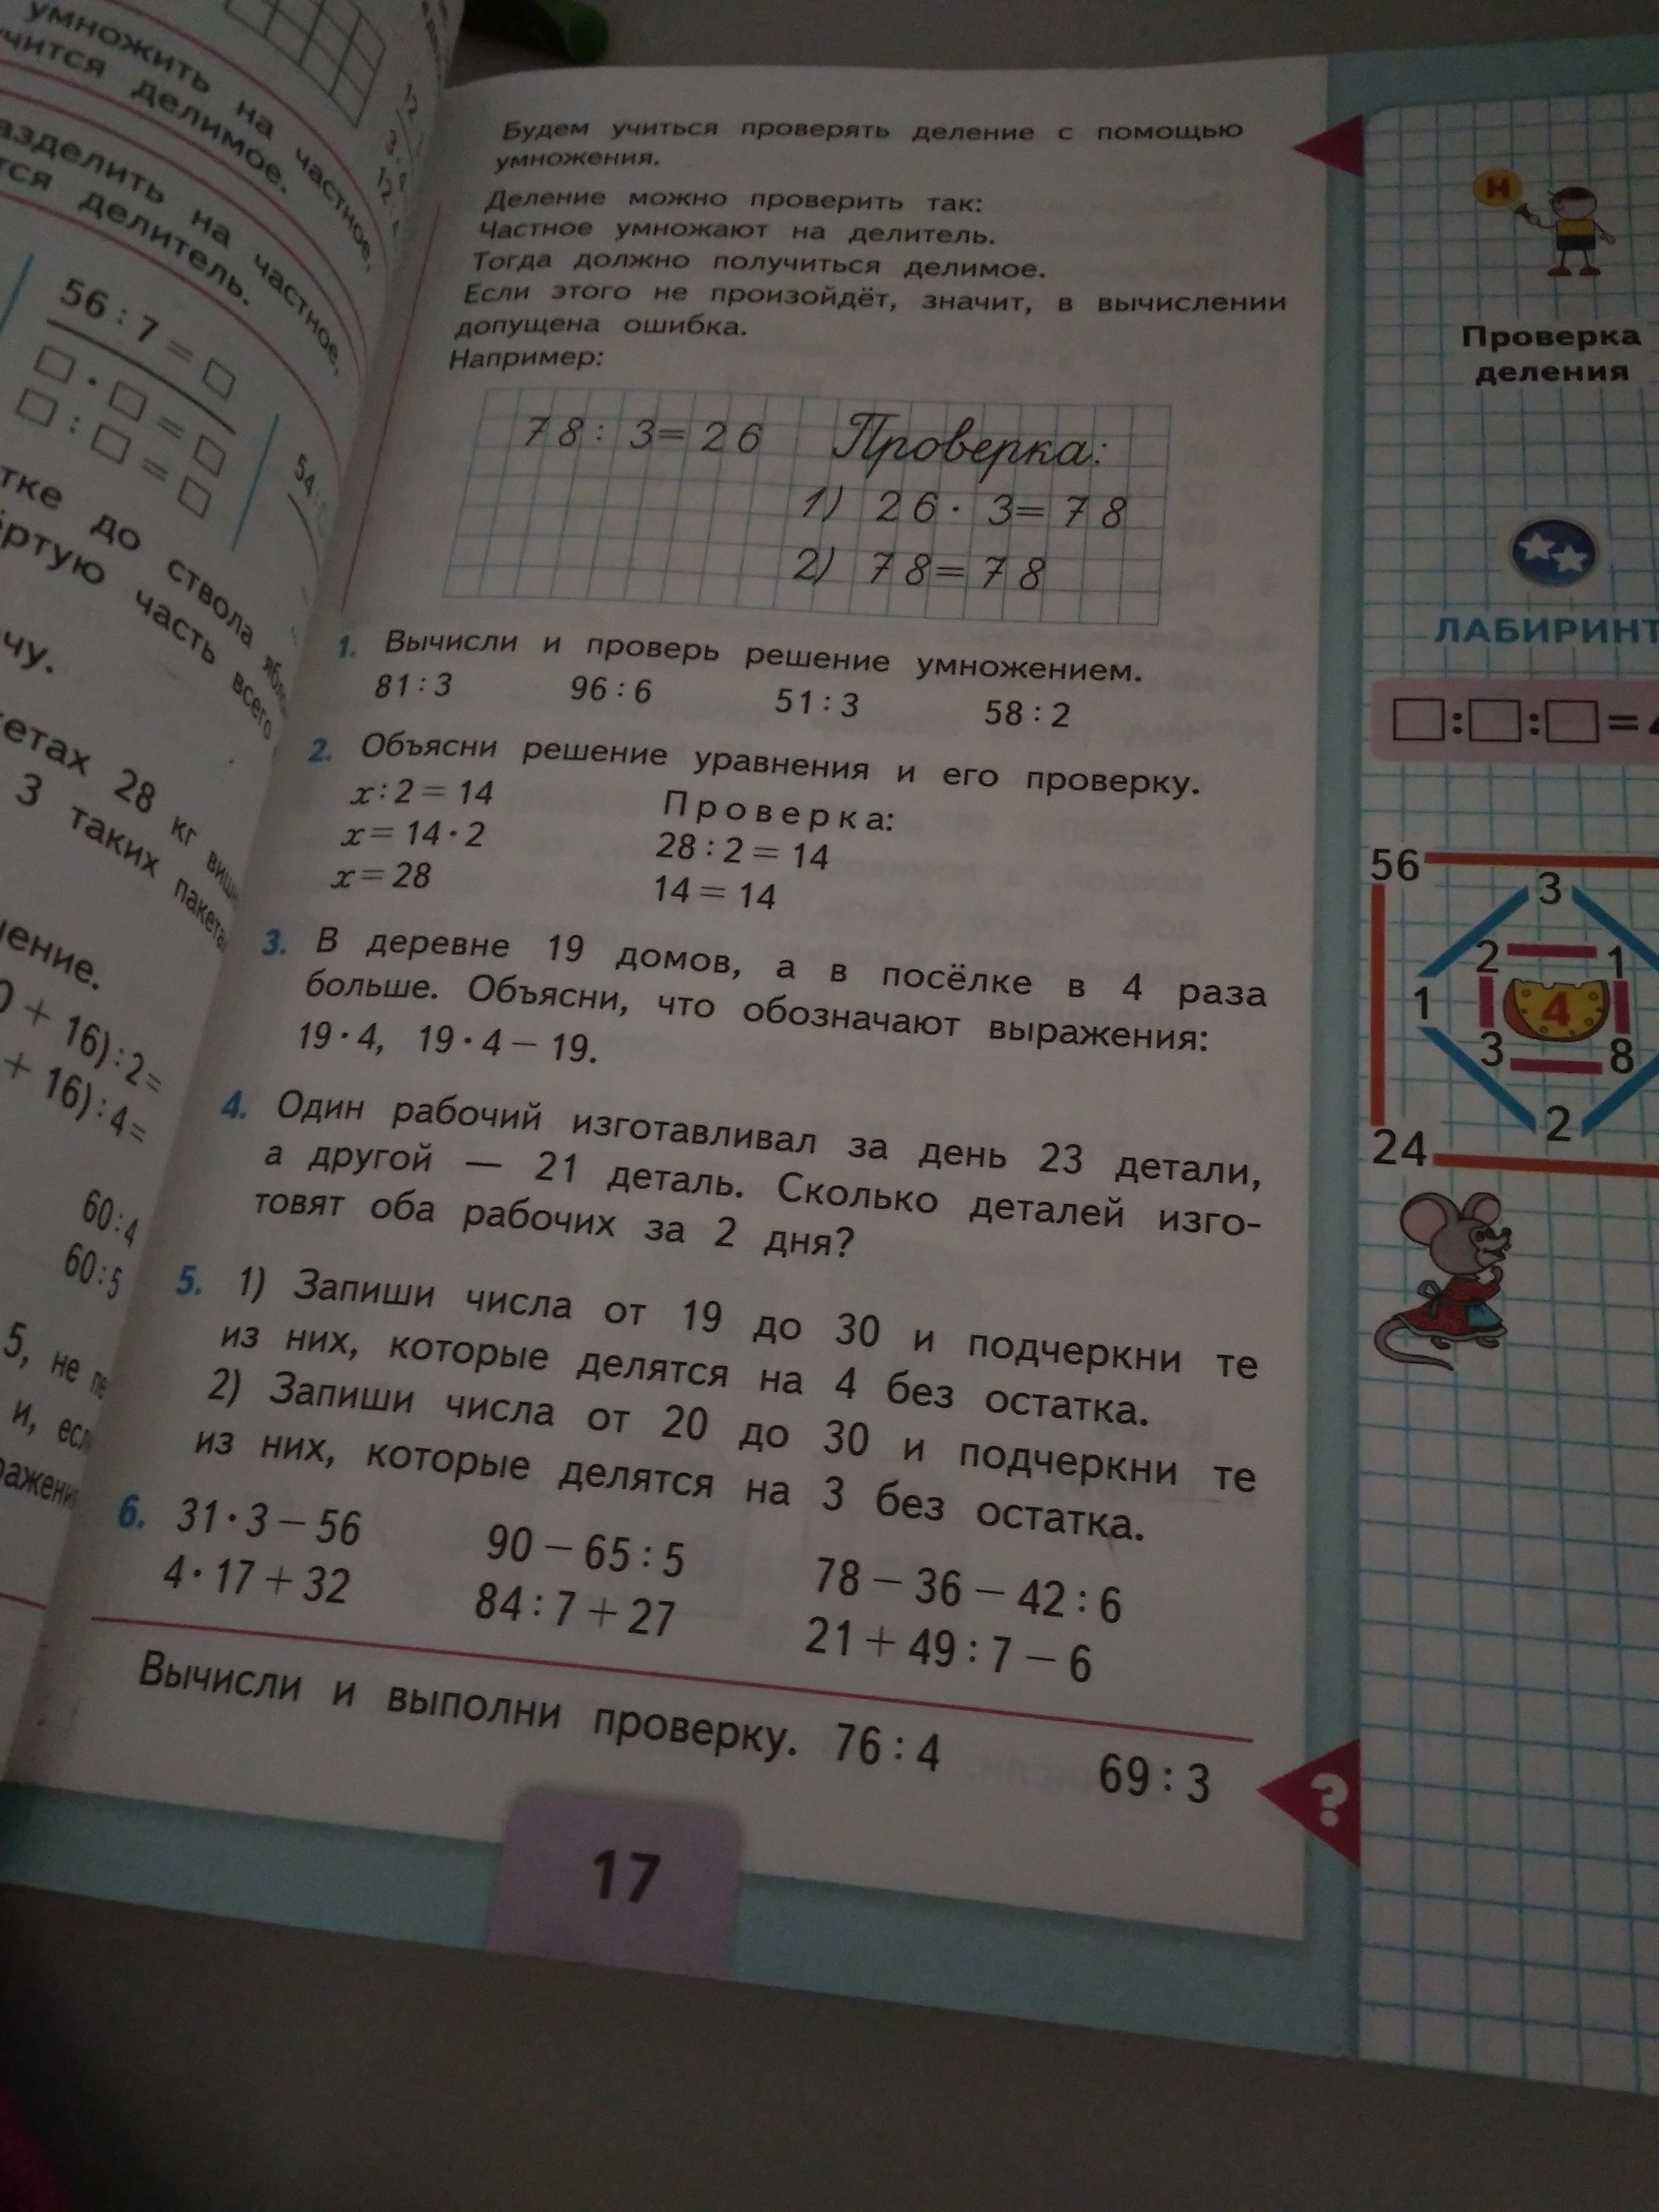 умножить на частное,
делимое.
на частное,
делитель.
56 : 7 = □
□ · □ = □
□ : □ = □
до ствола
часть всего
28 кг
3 таких
+ 16) : 2 =
+ 16) : 4 =
60 : 4
60 : 5
5, не
Будем учиться проверять деление с помощью
умножения.
Деление можно проверить так:
Частное умножают на делитель.
Тогда должно получиться делимое.
Если этого не произойдёт, значит, в вычислении
допущена ошибка.
Например:
78 : 3 = 26 Проверка:
1) 26 · 3 = 78
2) 78 = 78
1. Вычисли и проверь решение умножением.
81 : 3 96 : 6 51 : 3 58 : 2
2. Объясни решение уравнения и его проверку.
x : 2 = 14 Проверка:
x = 14 · 2 28 : 2 = 14
x = 28 14 = 14
3. В деревне 19 домов, а в посёлке в 4 раза
больше. Объясни, что обозначают выражения:
19 · 4, 19 · 4 – 19.
4. Один рабочий изготавливал за день 23 детали,
а другой — 21 деталь. Сколько деталей изго-
товят оба рабочих за 2 дня?
5. 1) Запиши числа от 19 до 30 и подчеркни те
из них, которые делятся на 4 без остатка.
2) Запиши числа от 20 до 30 и подчеркни те
из них, которые делятся на 3 без остатка.
6. 31 · 3 – 56 90 – 65 : 5 78 – 36 – 42 : 6
4 · 17 + 32 84 : 7 + 27 21 + 49 : 7 – 6
Вычисли и выполни проверку. 76 : 4 69 : 3
?
17
Н
Проверка
деления
ЛАБИРИНТ
□ : □ : □ =
56
3
2 1
1 4
3 8
2
24